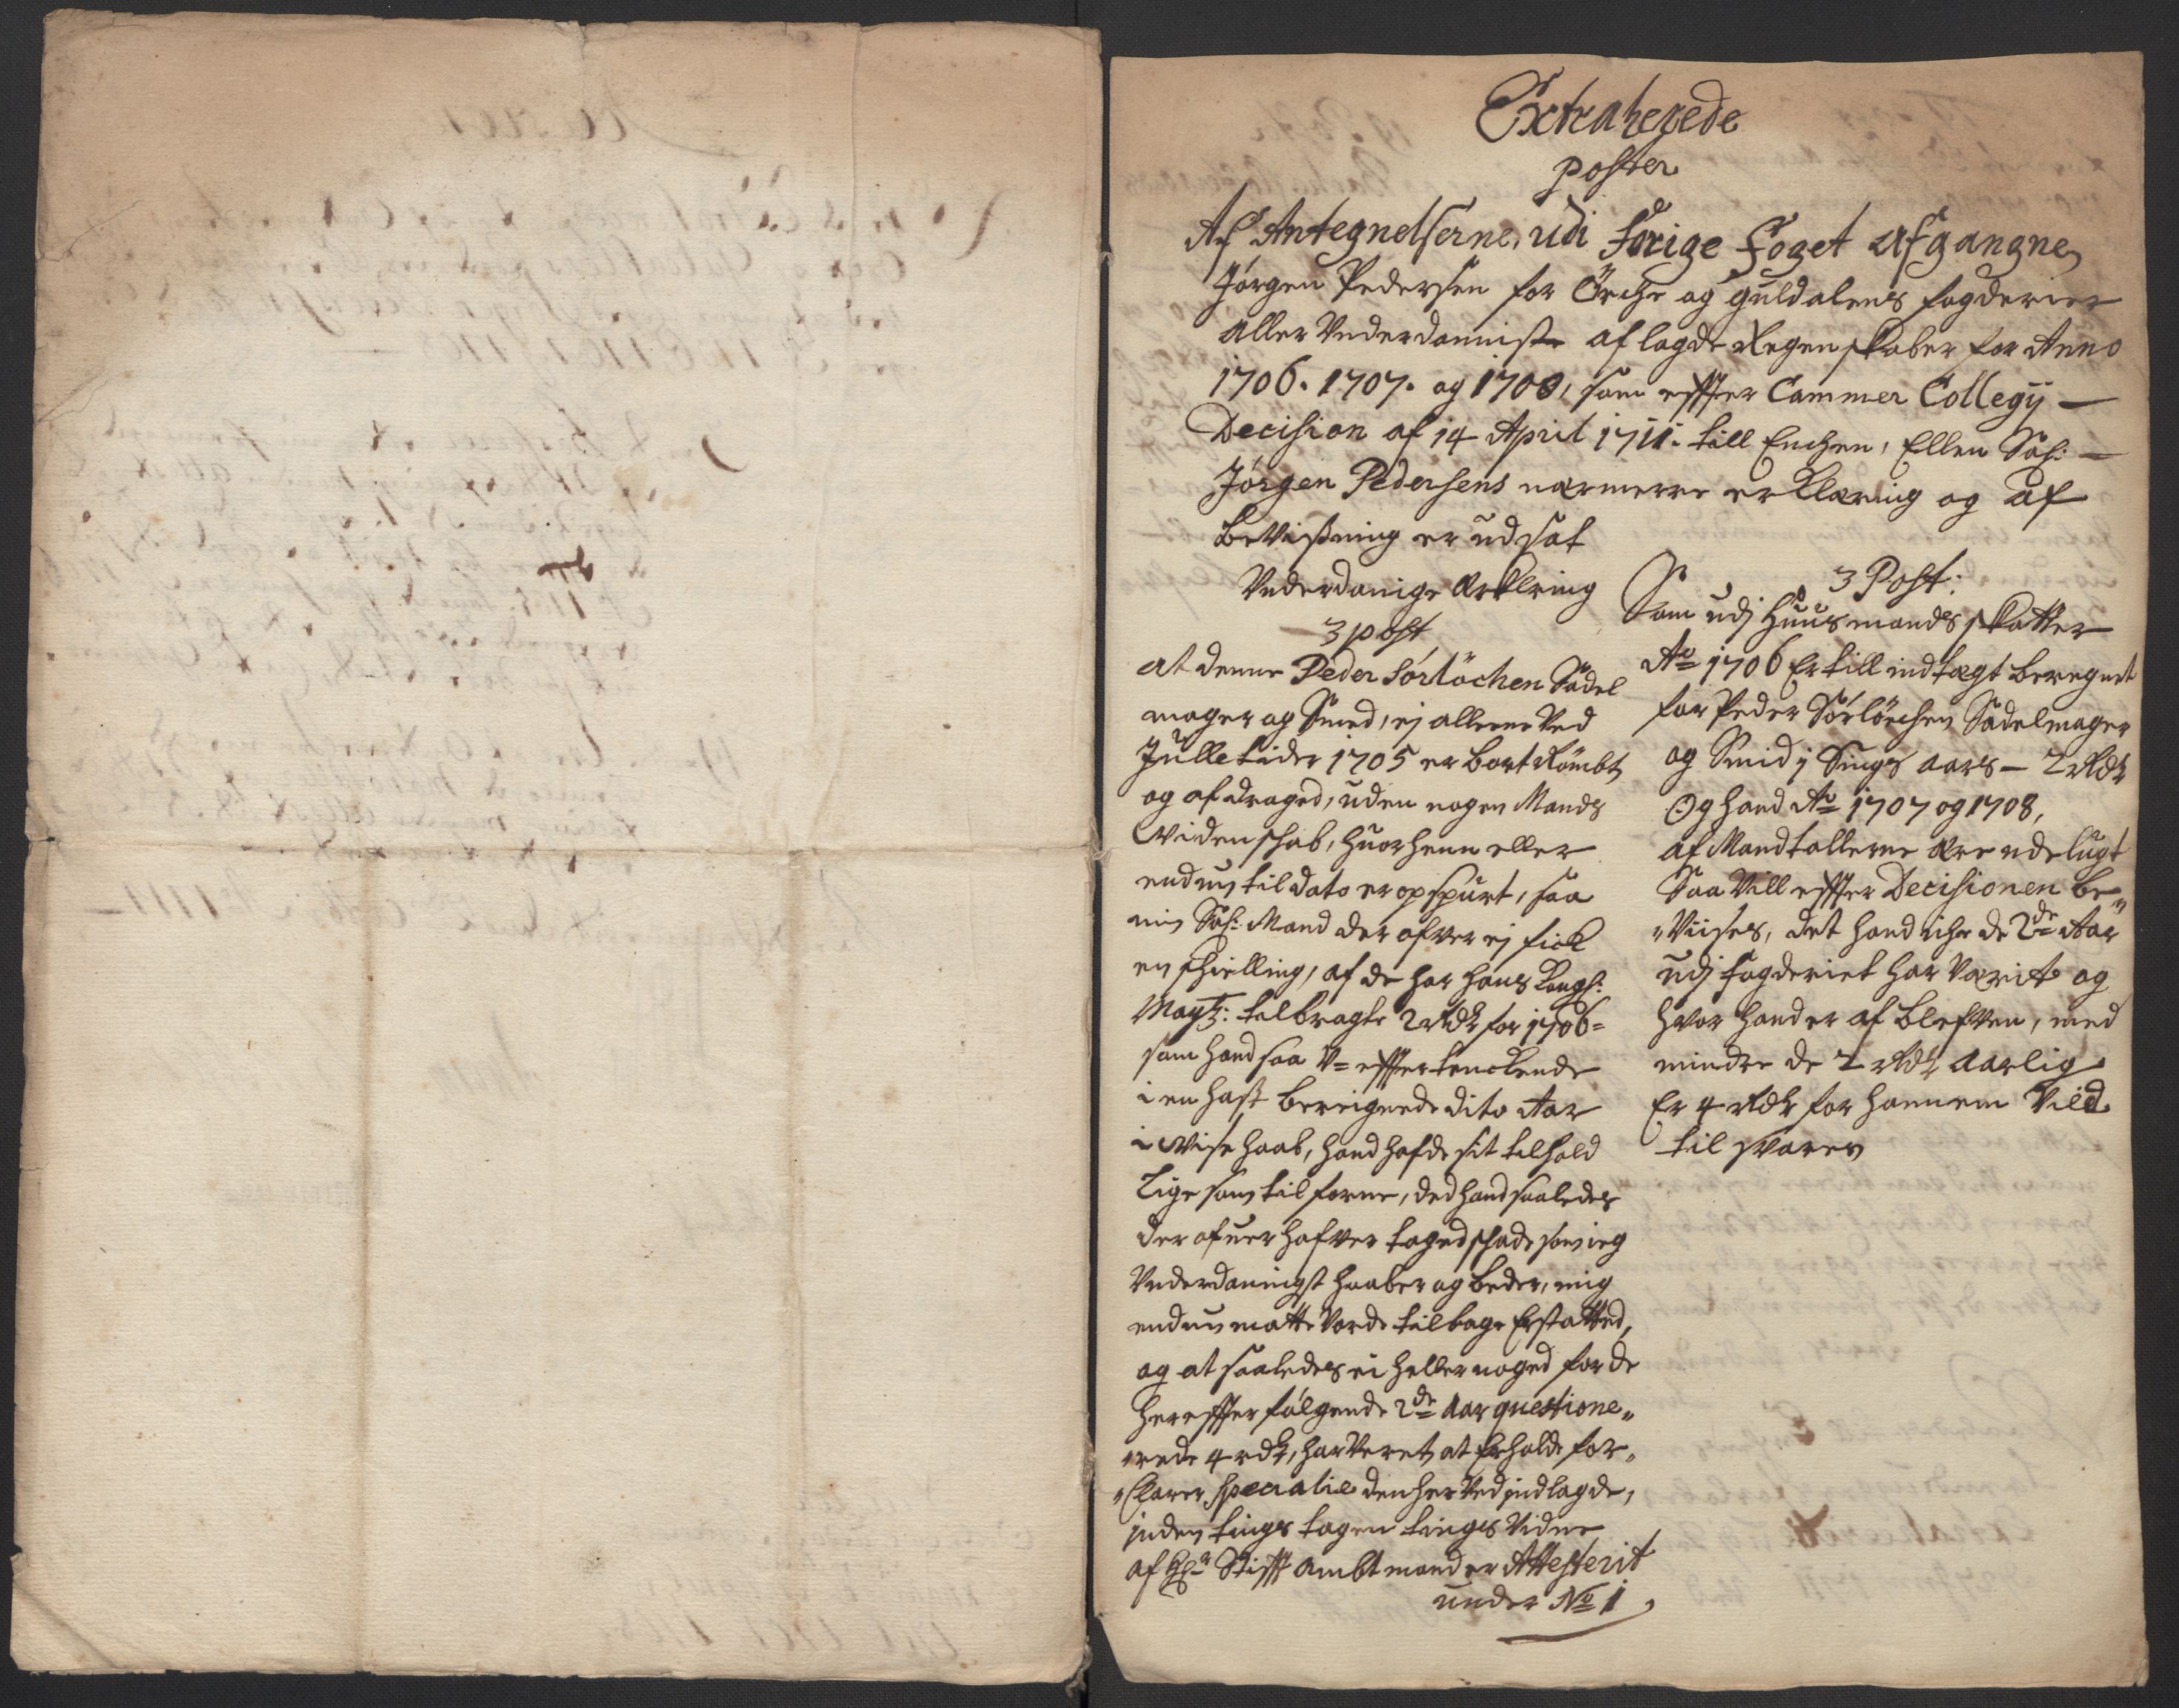 Extraherede
poster
Af Antegnelserne, udi Forige Foget Afgangne
Jørgen Pedersen for Örche og Guldalens fogderier
aller Underdannigste aflagde Regenskaber for Anno
1706. 1707. og 1708, som effter Cammer Collegij —
Decision af 14 April 1711. till Enchen, Ellen Sal: —
Jørgen Pedersens nærmerre erklæring og af
beviisning er udsat
Underdanige Erklering
3 post
at denne Peder Sørlöchen Sadel
mager og Smed, ej allene ved
Julletider 1705 er bort Römbt
og af draged, uden nogen Mands
Widenskab, huorhenn eller
endnu til dato er opspurt, saa
min Sal: Mand der ofver ej fick
en skielling, af de har hans Kongl:
Mayt: tilbragte 2 Rdr for 1706
som hand saa U= effter tenckende
i en hast bereignede dito Aar
i Wise haab, hand hafde sit tilhold
Lige som til forne, ded hand saaledes
der ofuer hafver taged skade som ieg
Underdanigst haaber og beder, mig
endnu motte vorde tilbage Erstatted,
og at saaledes ei heller noged for de
her effter følgende 2de Aar questione„
„rede 4 rdr, har veret at Erholde for„
„Clarer Specialie den her ved indlagde,
inden tings tagen tings vidne
af Hr Stifft Ambtmand er Attesterit
under No 1
3 Post:
Som udj Huusmands skatter
Ao 1706 Er till indtægt beregnet
for Peder Sörlöchen Sadelmager
og Smid j Sings aars — 2 Rdr
Og hand Ao 1707 og 1708,
af Mandtallerne ere udelugt
Saa vill effter Decisionen be„
„Viises, det hand iche de 2de Aar
udj fogderiet har værit og
hvor hand er af blefven, med
mindre de 2 Rdr Aarlig
Er 4 Rdr for hannem vild
til svares